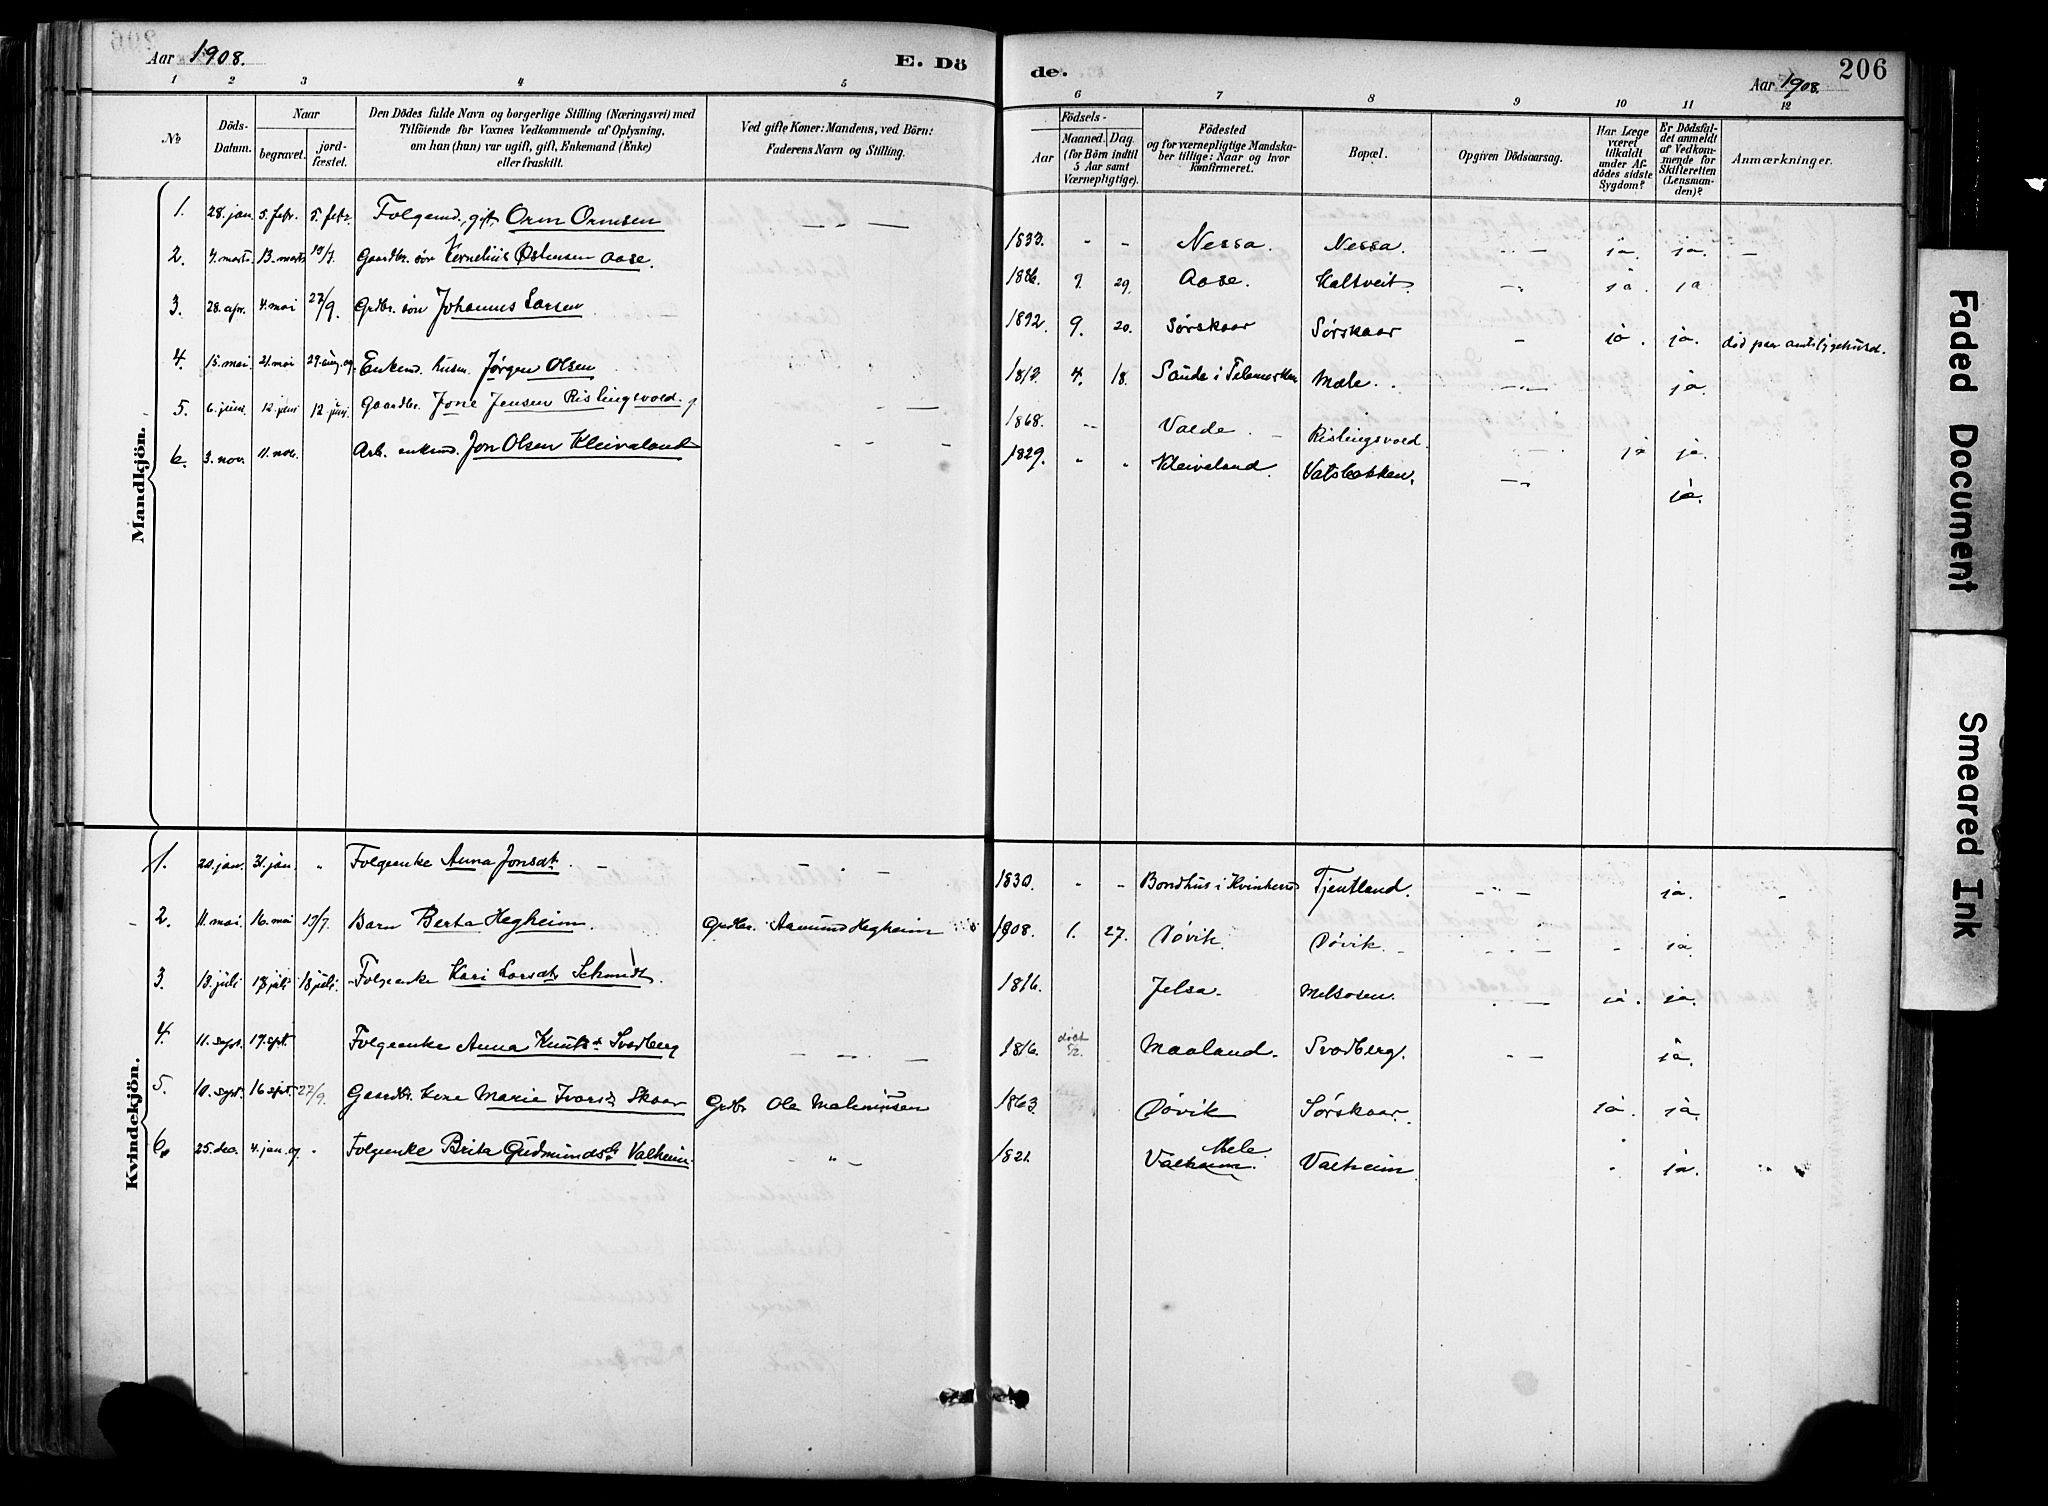 Aar 1908.
E. Dö
de.
Aar 1908.
206
1 2 3 4 5 6 7 8 9 10 11 12
No
Döds-Datum.
Naar
begravet.
jord-fæstet.
Den Dödes fulde Navn og borgerlige Stilling (Næringsvei) med
Tilföiende for Voxnes Vedkommende af Oplysning,
om han (hun) var ugift, gift, Enkemand (Enke)
eller fraskilt.
Ved gifte Koner: Mandens, ved Börn:
Faderens Navn og Stilling.
Födsels-
Aar
Maaned. Dag.
(for Börn indtil
5 Aar samt
Værnepligtige).
Födested
og for værnepligtige Mandska-
ber tillige: Naar og hvor
konfirmeret.
Bopæl.
Opgiven Dödsaarsag.
Har Læge
været
tilkaldt
under Af-
dödes sidste
Sygdom?
Er Dödsfal-
det anmeldt
af Vedkom-
mende for
Skifteretten
(Lensman-
den)?
Anmærkninger.
Mandkjön.
1. 28. jan. 5. febr. 5. febr. Folgemd., gift Orm Ormsen 1833. Nessa. Nessa. ja ja.
2. 4. marts 13. marts 19/7. Gaardbr. søn Kornelius Østensen Aase. 1886. 9. 29. Aase. Haltveit. ja. ja
3. 28. apr. 4. mai 27/9. Grdbr. søn Johannes Larsen 1892. 9. 20. Sørskaar Sørskaar ja. ja. død paa amtssygehuset.
4. 15. mai. 21. mai 29. aug. Enkemd. husm. Jørgen Olsen 1813. 4. 18. Saude i Telemarken Mæle. ja.
5. 6. juni. 12. juni 12. juni. Gaardbr. Jone Jensen Rislingsvold. 1868. Valde Rislingsvold. ja ja.
6. 3. nov. 11. nov. Arb. enkmd. Jon Olsen Kleivaland 1829. Kleiveland. Vatsbakken. ja.
Kvindekjön.
1. 20. jan. 31. jan. Folgeenke Anna Jonsdt. 1830. Bondhus i Kvinherred Tjentland. ja.
2. 11. mai 16. mai 19/7. Barn Berta Hegheim. Grdbr. Aamund Hegheim 1908. 1. 27. Døvik. Døvik. ja.
3. 13. juli 18 juli 18 juli. Folgeenke Kari Larsdt. Schmidt. 1816. Jelsa. Melsosen. ja. ja.
4. 11. sept. 17. spt. Folgeenke Anna Knutsdt. Svadberg 1816. døbt 5/2. Maaland. Svadberg. ja.
5. 10. sept. 16 spt. 27/9. Gaardbr. kone Marie Ivarsdt. Skaar Grdbr Ole Malminsen 1863. Døvik Sørskaar. ja. ja.
6. 25. dec. 4. jan. 09 Folgeenke Brita Gudmundsdt. Valheim. 1821. Mele Valheim. Valheim ja.
Faded Document
Smeared Ink